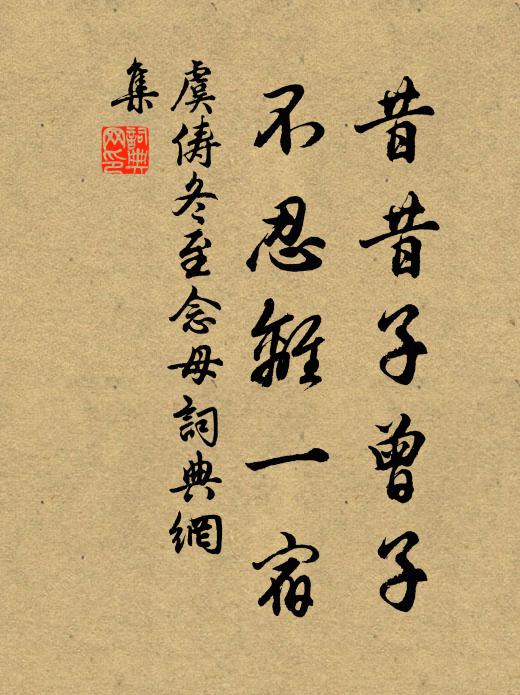 昔昔子曾子
不忍離一宿
虞儔冬至念母詞典網
集
詞典網印